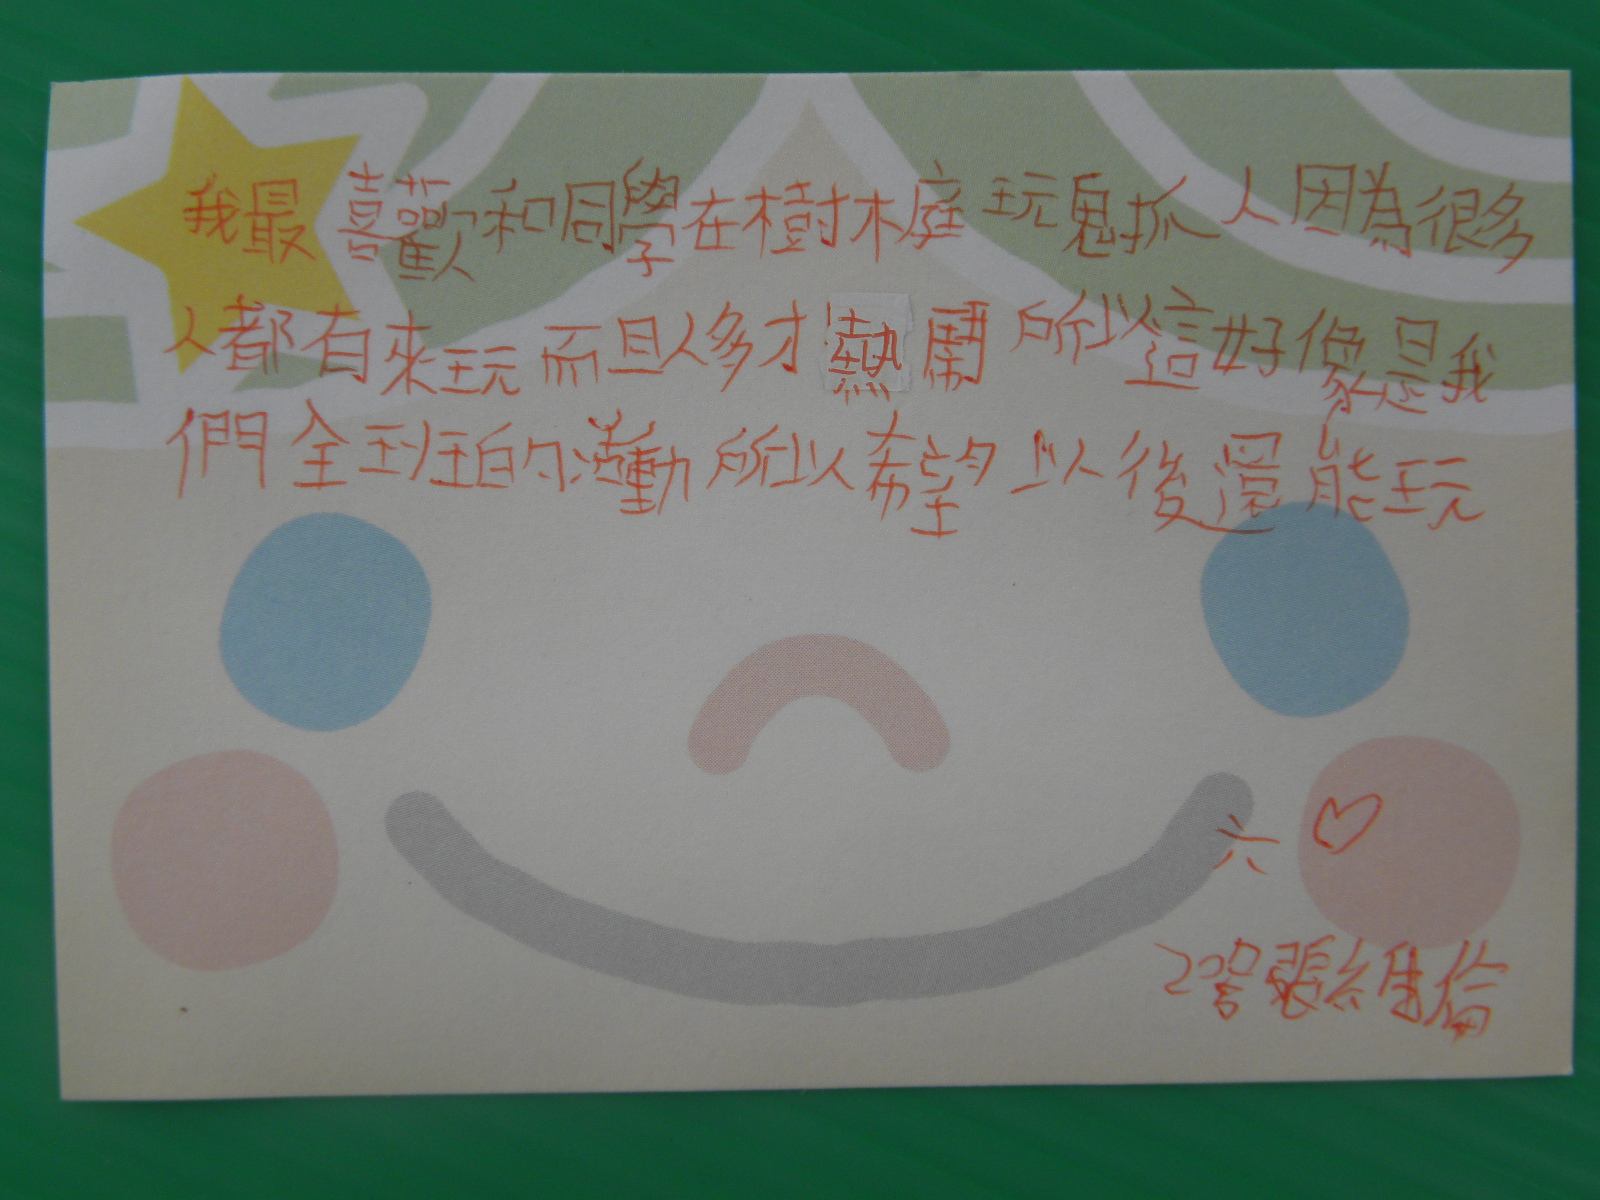 我最喜歡和同學在樹木庭玩鬼抓人因為很多
人都有來玩而且人多才熱鬧所以這好像是我
們全班班的活動所以希望以後還能玩
六♡
張維倫